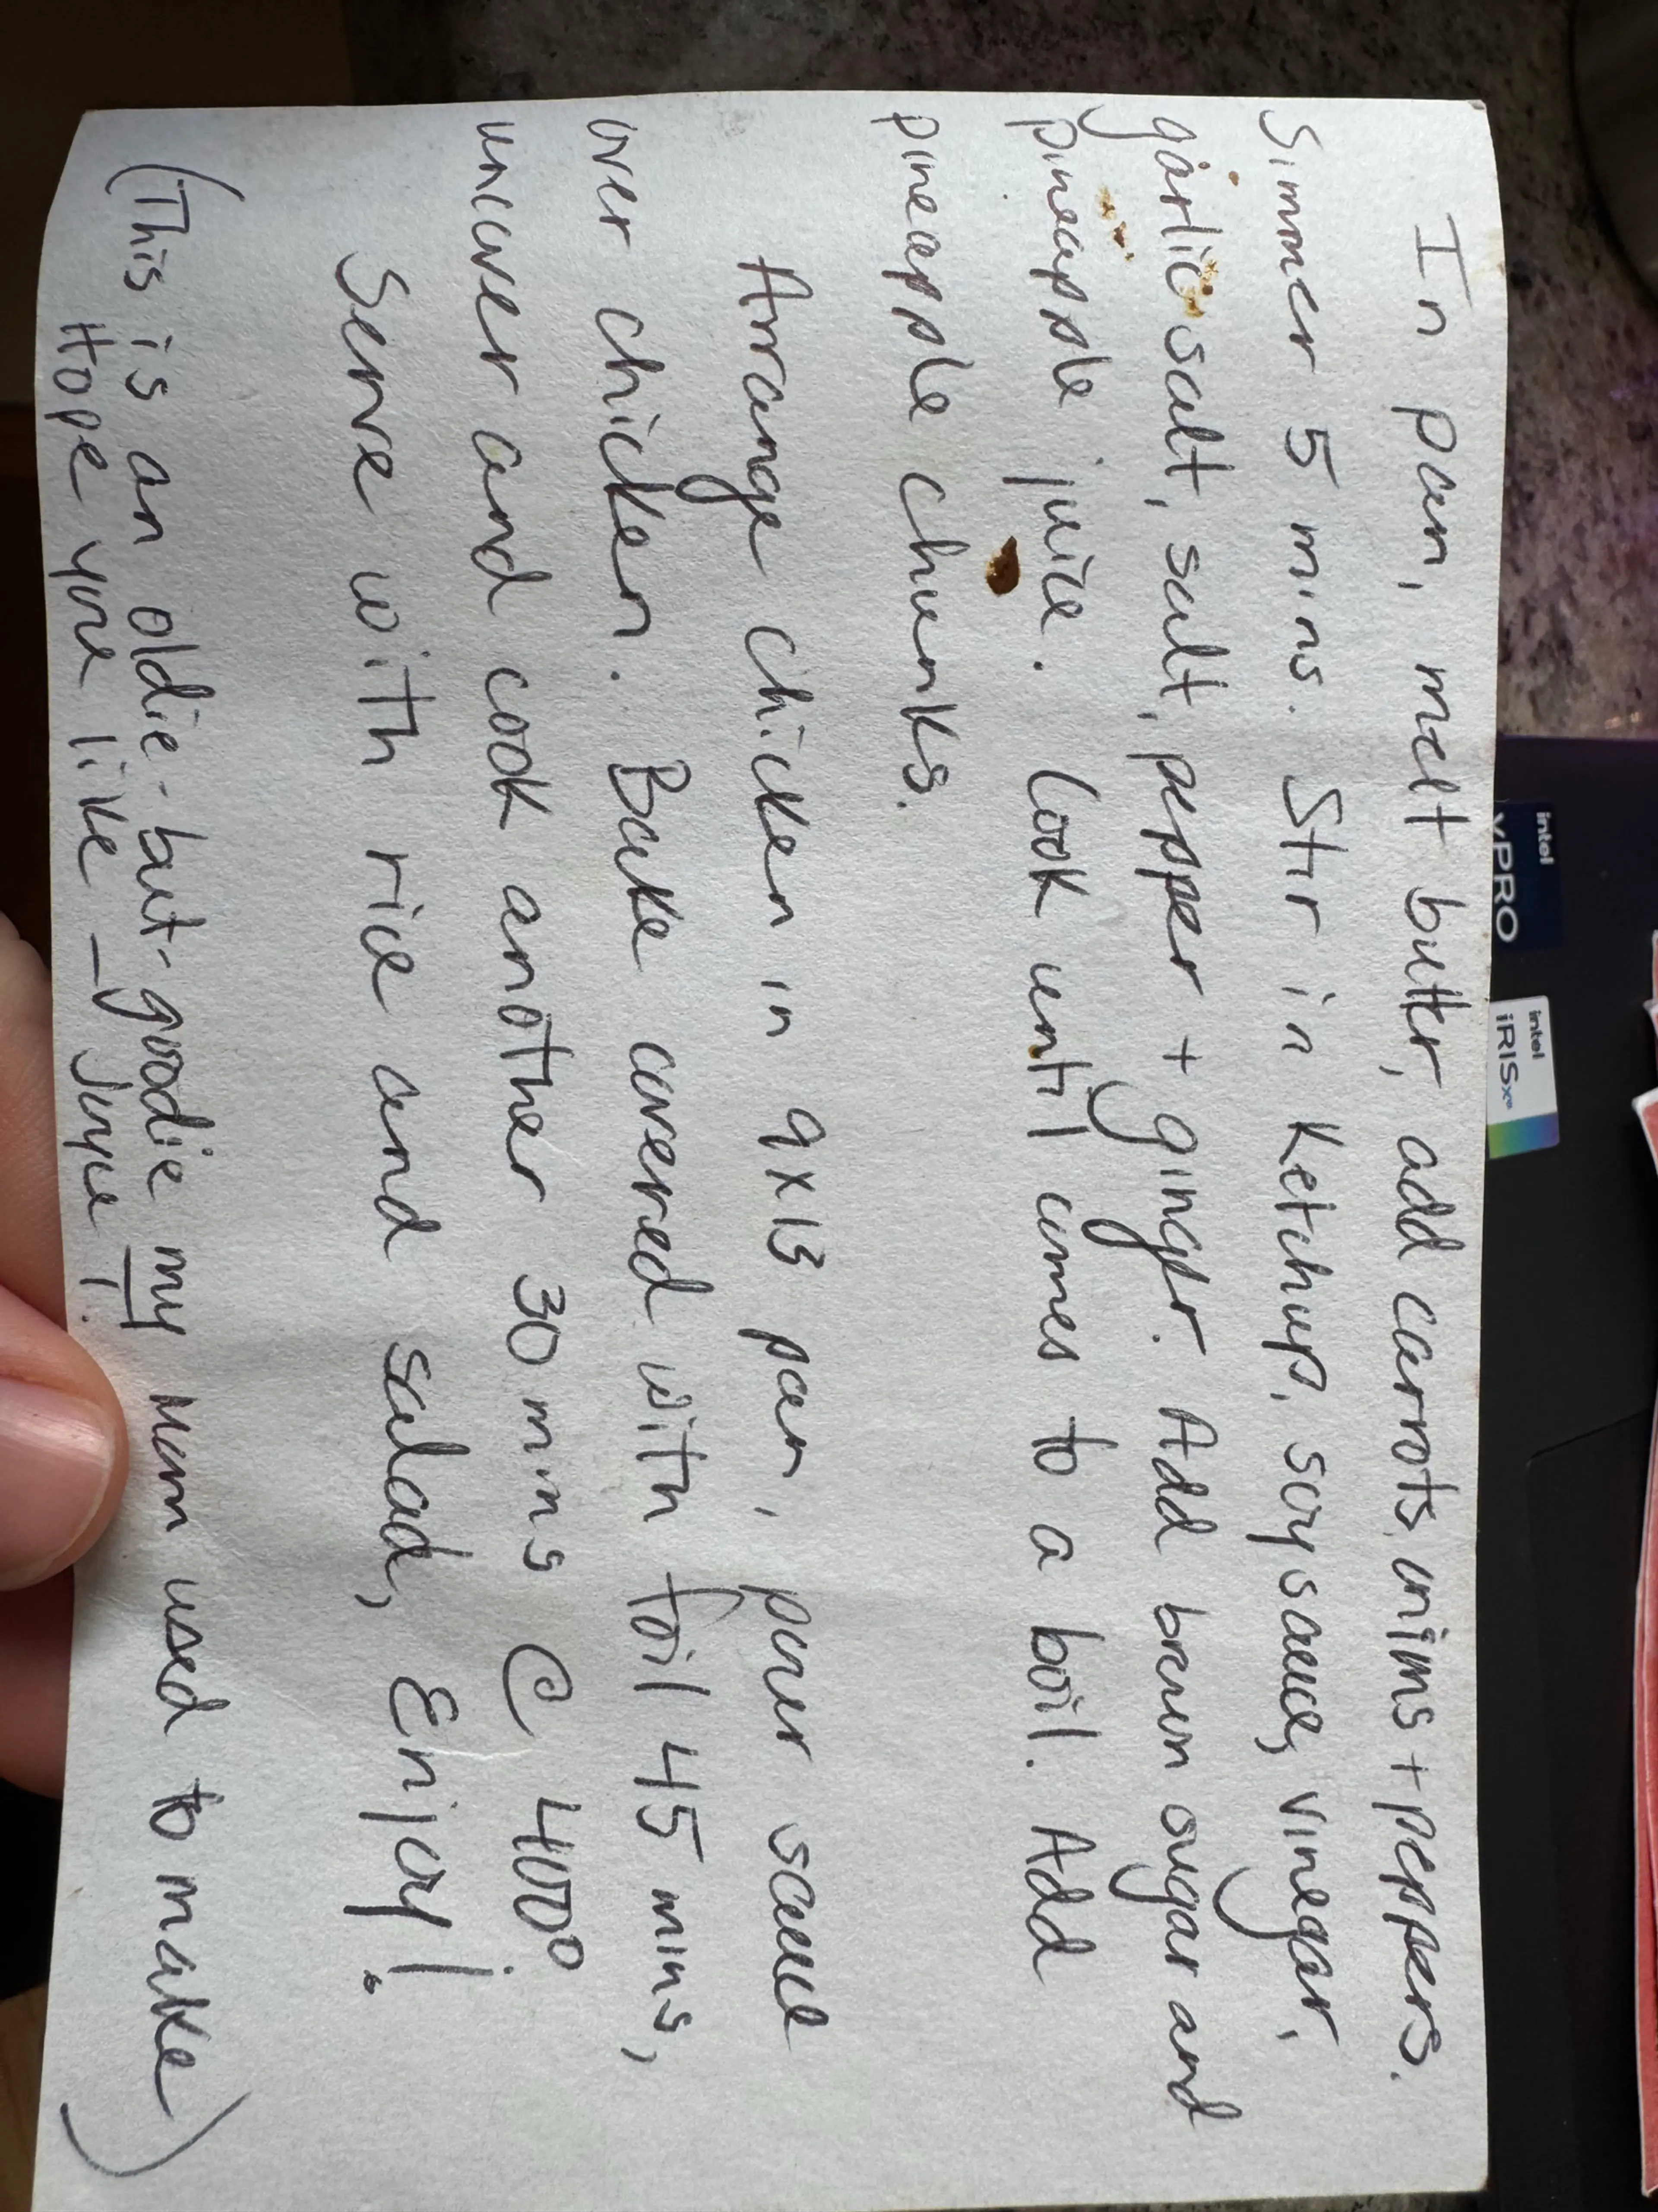 In pan, melt butter, add carrots, onions + peppers.
Simmer 5 mins. Stir in ketchup, soy sauce, vinegar,
garlic salt, salt, pepper + ginger. Add brown sugar and
pineapple juice. Cook until comes to a boil. Add
pineapple chunks.
Arrange chicken in 9x13 pan, pour sauce
over chicken. Bake covered with foil 45 mins,
uncover and cook another 30 mins @ 400°
Serve with rice and salad, Enjoy!
(This is an oldie-but-goodie my mom used to make)
Hope you like - Joyce!
intel
vPRO
intel
iRISxe